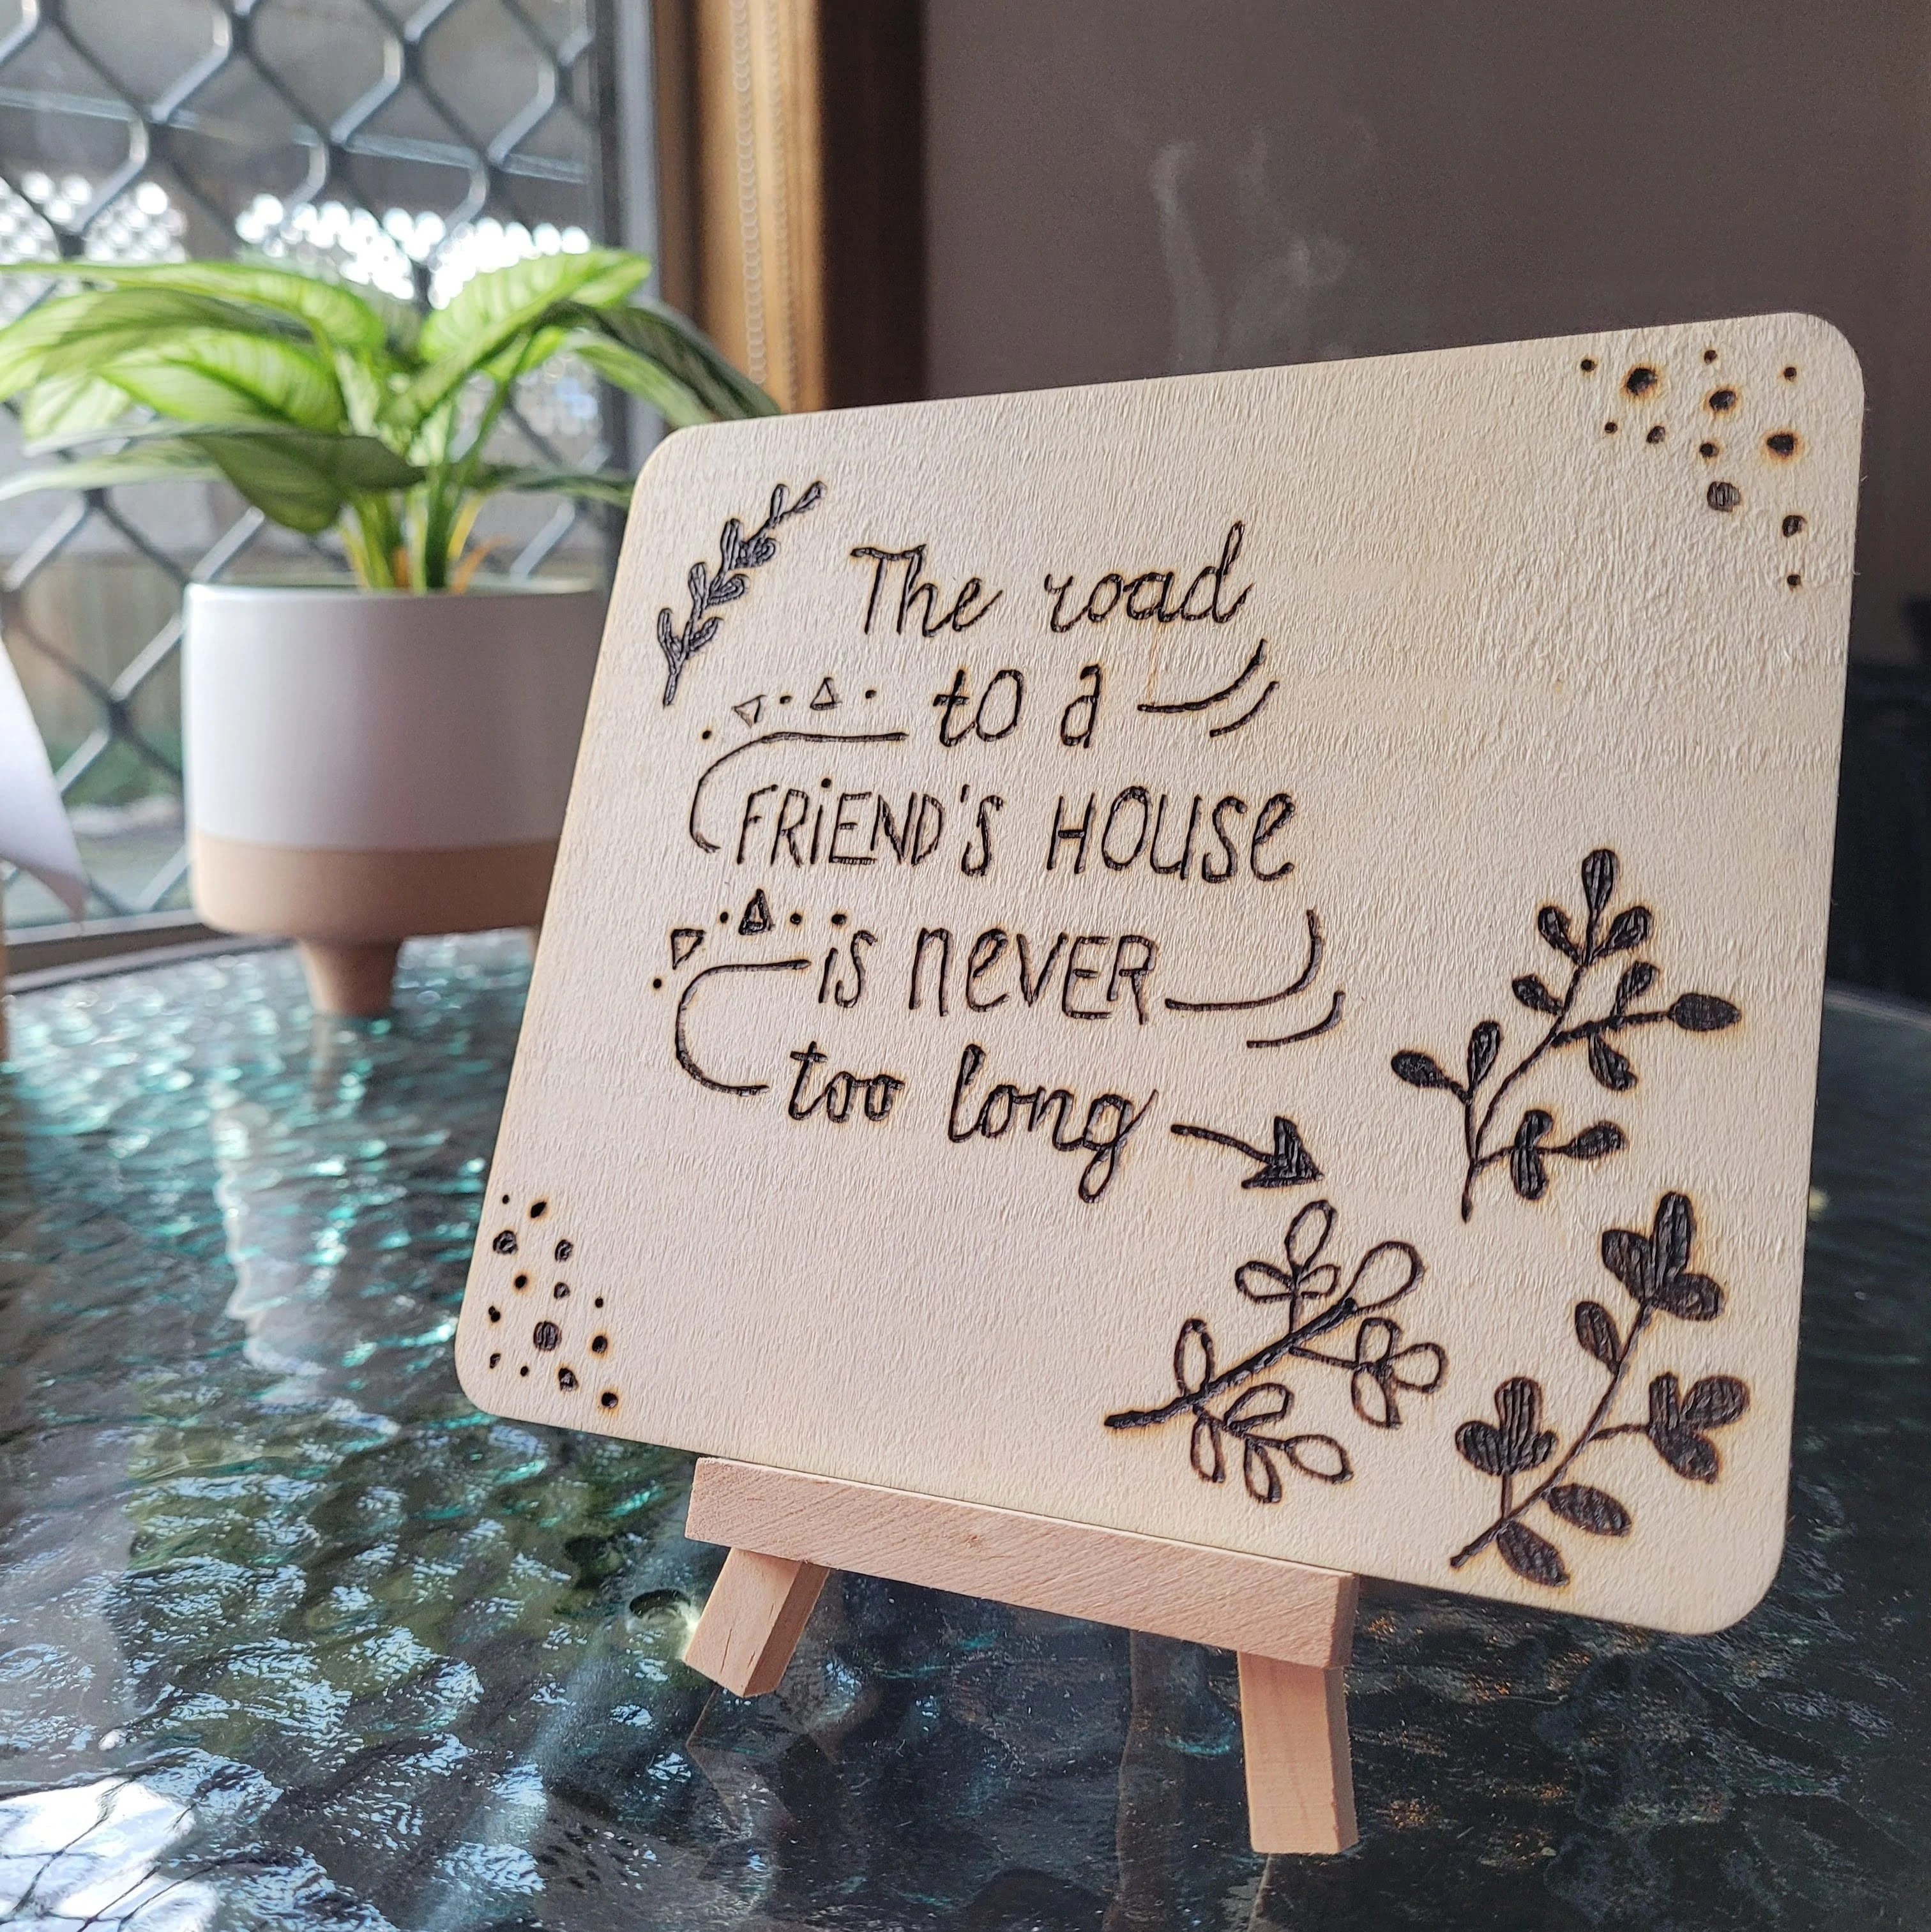 The road
to a
FRiEND'S HOUSe
is neVER
too long